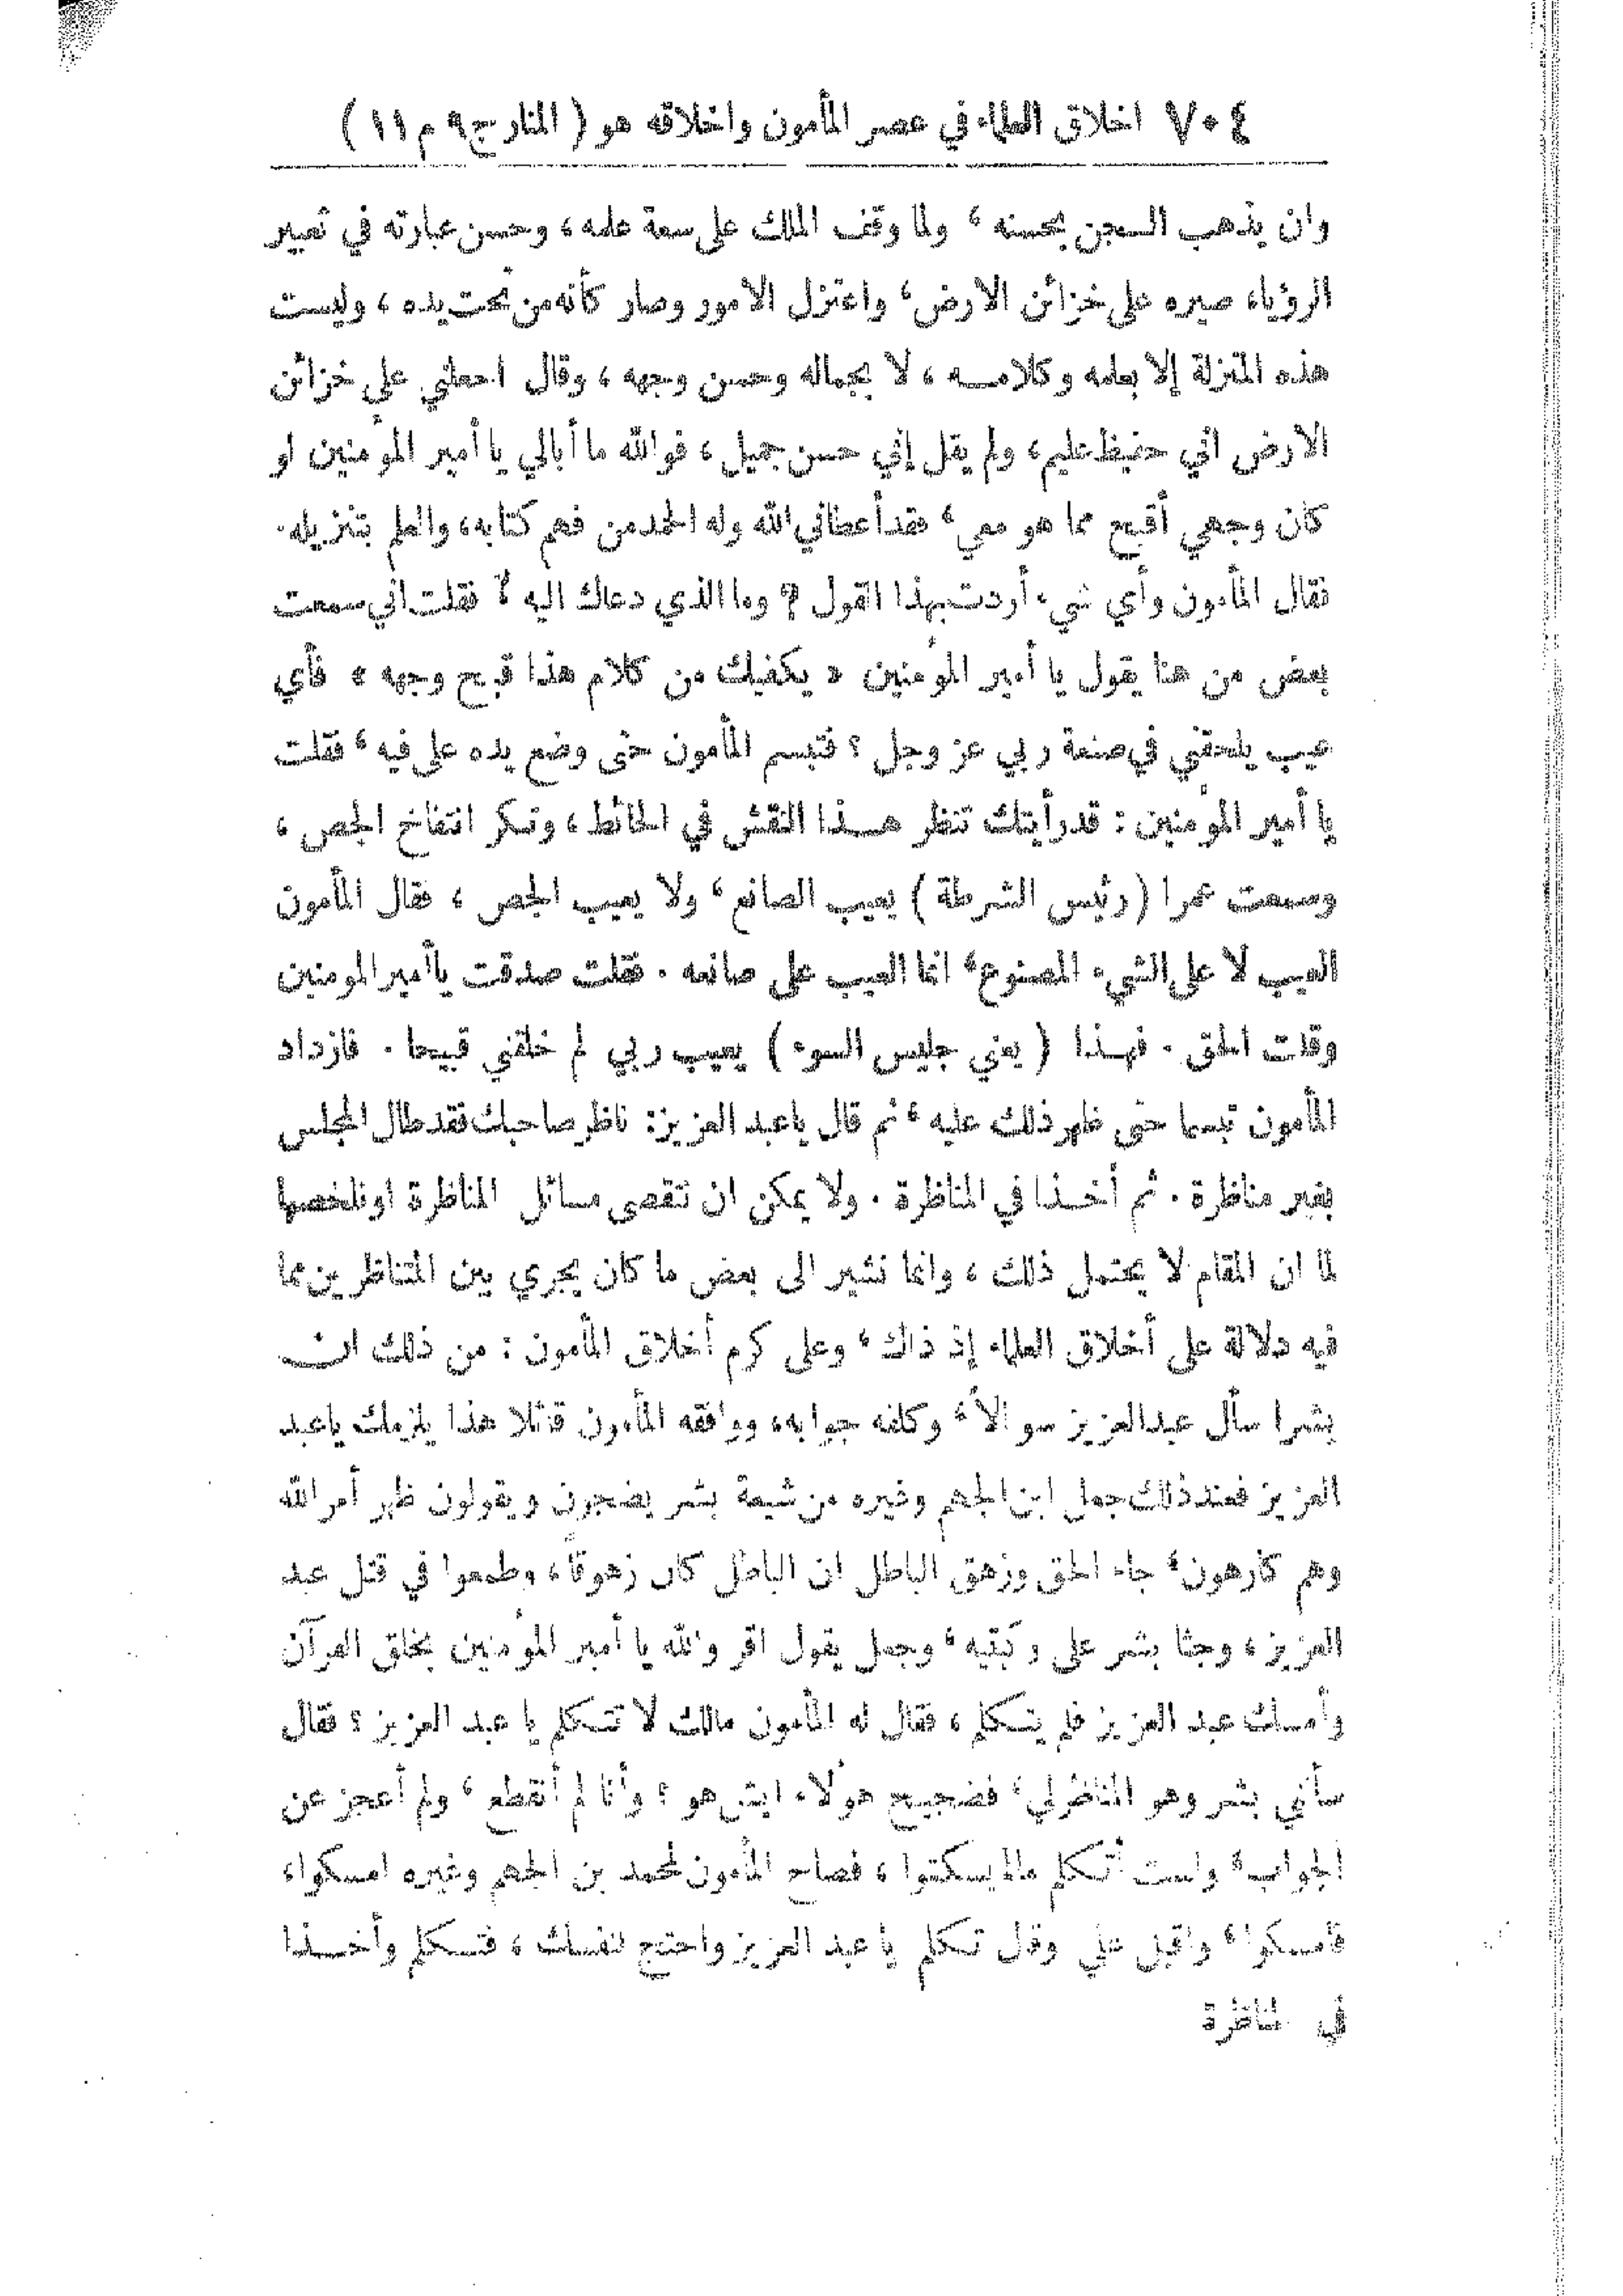 ٧٠٤ اخلاق العلماء في عصر المأمون واخلاقه هو ( المنارج ٩ م ١١ )
وان يذهب السجن بحسنه ، ولما وقف الملك على سعة علمه ، وحسن عبارته في تعبير
الرؤياء صيره على خزائن الارض ، واعتزل الامور وصار كأنه من تحت يده ، وليست
هذه المنزلة إلا بعلمه وكلامـــه ، لا بجماله وحسن وجهه ، وقال اجعلني على خزائن
الارض اني حفيظ عليم ، ولم يقل إني حسن جميل ، فوالله ما أبالي يا أمير المؤمنين لو
كان وجهي أقبح مما هو معي ، فقد أعطاني الله وله الحمد من فهم كتابه ، والعلم بتنزيله .
فقال المأمون وأي شيء أردت بهذا القول ؟ وما الذي دعاك اليه ؟ فقلت اني سمعت
بعض من هنا يقول يا أمير المؤمنين « يكفيك من كلام هذا قبح وجهه » فأي
عيب يلحقني في صنعة ربي عز وجل ؟ فتبسم المأمون حتى وضع يده على فيه ، فقلت
يا أمير المؤمنين : قد رأيتك تنظر هـــذا النقش في الحائط ، وتنكر انتفاخ الجص ،
وسمعت عمرا ( رئيس الشرطة ) يعيب الصانع ، ولا يعيب الجص ، فقال المأمون
العيب لا على الشيء المصنوع ، انما العيب على صانعه . فقلت صدقت يا أمير المومنين
وقلت الحق . فهـــذا ( يعني جليس السوء ) يعيب ربي لم خلقني قبيحا . فازداد
المأمون تبسما حتى ظهر ذلك عليه ، ثم قال ياعبد العزيز : ناظر صاحبك فقد طال المجلس
بغير مناظرة . ثم أخـــذا في المناظرة . ولا يمكن ان نتقصى مسائل المناظرة او نلخصها
لما ان المقام لا يحتمل ذلك ، وانما نشير الى بعض ما كان يجري بين المتناظرين مما
فيه دلالة على أخلاق العلماء إذ ذاك ، وعلى كرم أخلاق المأمون : من ذلك ان
بشرا سأل عبدالعزيز سوالاً ، وكلفه جوابه ، ووافقه المأمون قائلا هذا يلزمك ياعبد
العزيز فعند ذلك جعل ابن الجهم وغيره من شيعة بشر يضجون ويقولون ظهر أمر الله
وهم كارهون ، جاء الحق وزهق الباطل ان الباطل كان زهوقاً ، وطمعوا في قتل عبد
العزيز ، وجثا بشر على ركبتيه ، وجعل يقول اقر والله يا أمير المؤمنين بخلق القرآن
وأمسك عبد العزيز فلم يتـكلم ، فقال له المأمون مالك لا تتـكلم يا عبد العزيز ؟ فقال
سألني بشر وهو المناظر لي ، فضجيج هولاء ايش هو ؟ وأنا لم أنقطع ، ولم أعجز عن
الجواب ، ولست أتـكلم مالم يسكتوا ، فصاح المأمون لمحمد بن الجهم وغيره امسكوا ،
فامسكوا ، واقبل علي وقال تـكلم يا عبد العزيز واحتج لنفسك ، فتـكلم وأخـــذا
في المناظرة